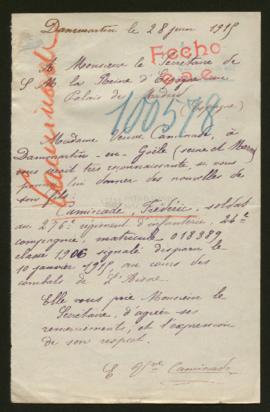 Dammartin le 28 juin 1915
Fecho
A Monsieur le Secretaire de
S M la Reine d'Espagne
Palais de Madrid
(Espagne)
100578
Caminade
Madame Veuve Caminade, à
Dammartin-en-Goële (Seine et Marne)
vous serait très reconnaissante, si vous
lui donner des nouvelles de
son fils
Caminade, Frédéric, soldat
au 276e régiment d'infanterie, 24e
compagnie, matricule 018989
classe 1906 signalé disparu le
10 janvier 1915, au cours des
combats de l'Aisne.
Elle vous prie Monsieur le
Secrétaire, d'agréer ses
remerciements, et l'expression
de son respect.
E Vve Caminade